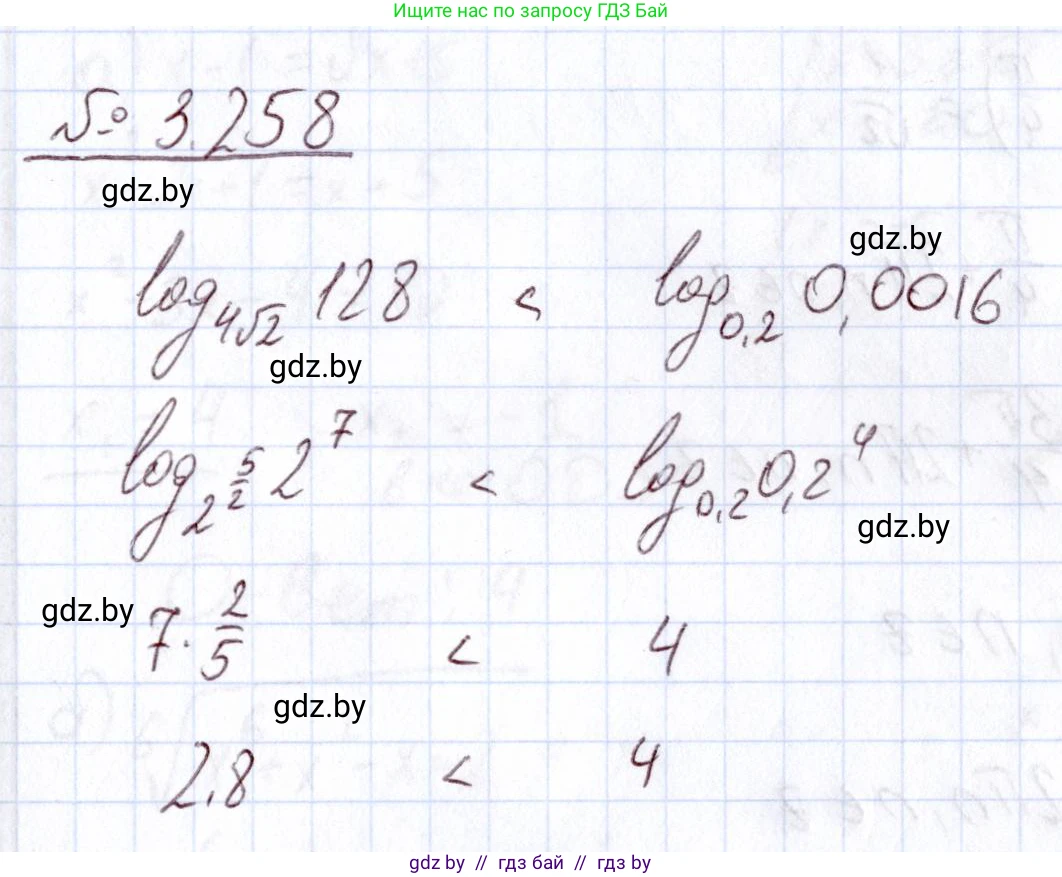 Ищите нас по запросу ГДЗ Бай
№ 3.258
gdz.by
gdz.by
log_{4√2} 128 < log_{0,2} 0,0016
gdz.by
log_{2^{5/2}} 2^7 < log_{0,2} 0,2^4
gdz.by
gdz.by
7 · 2/5 < 4
gdz.by
2.8 < 4
gdz.by // гдз бай // гдз by